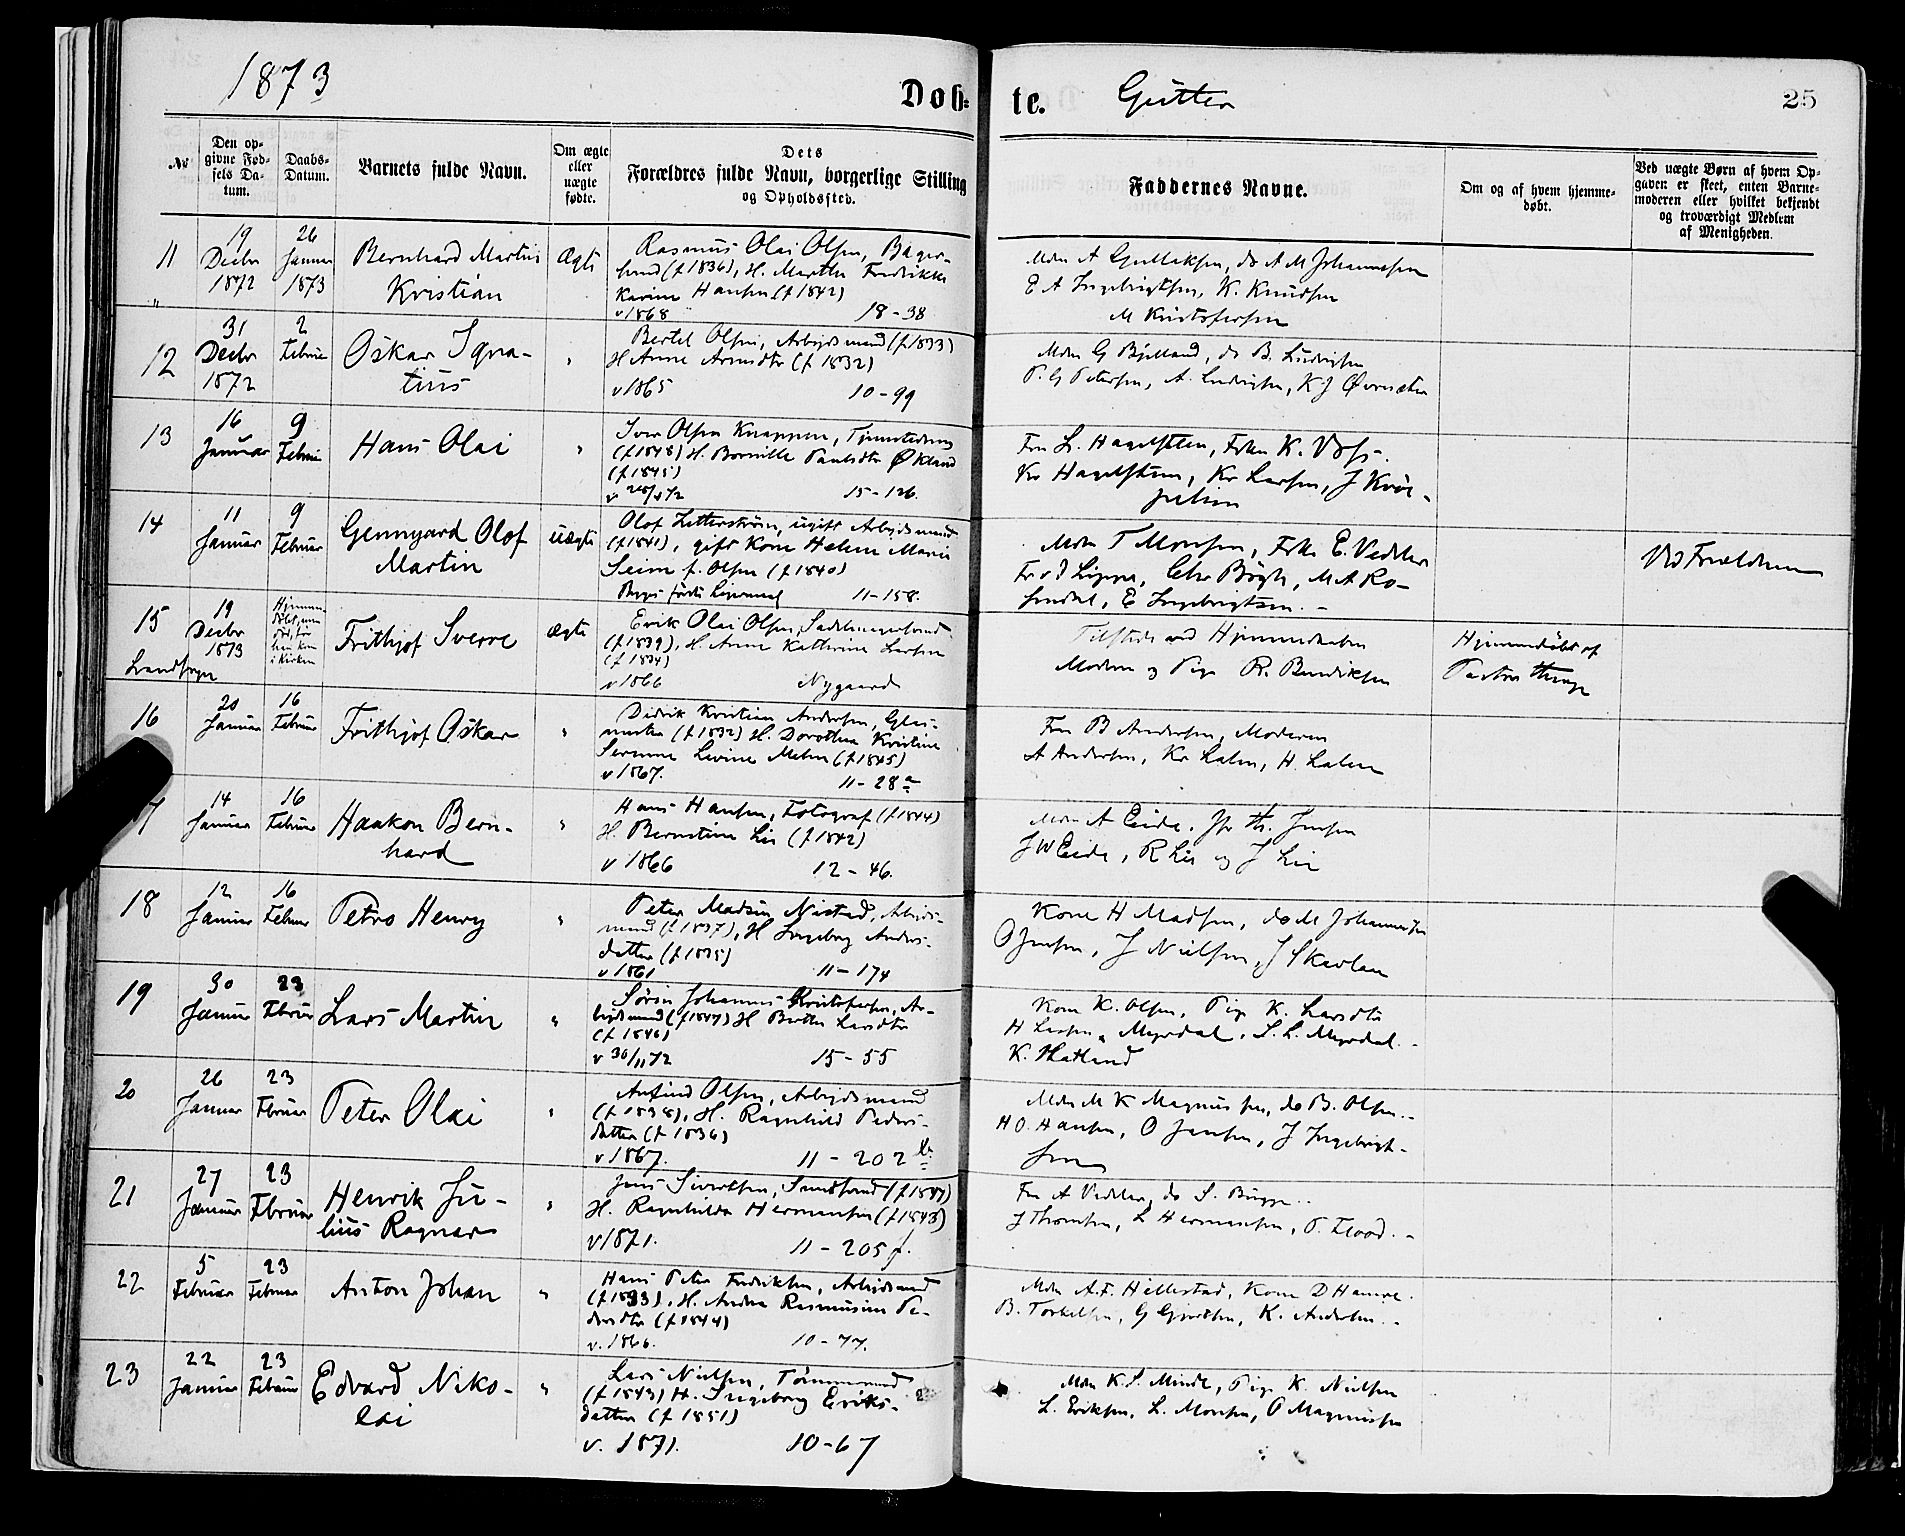 1873
Døb-
te.
Gutter
25
№
Den op-
givne Fød-
sels Da-
tum.
Daabs-
Datum.
Barnets fulde Navn.
Om ægte
eller
uægte
fødte.
Dets
Forældres fulde Navn, borgerlige Stilling
og Opholdssted.
Faddernes Navne.
Om og af hvem hjemme-
døbt.
Ved uægte Børn af hvem Op-
gaven er skeet, enten Barne-
moderen eller hvilket bekjendt
og troværdigt Medlem
af Menigheden.
11
19
Decbr
1872
26
Januar
1873
Bernhard Martin
Kristian
Ægte
Rasmus Olai Olsen, Bager-
svend (f 1836), H. Marthe Fredrikke
Karine Hansen (f 1842)
v 1868 18-38
Mdm A Gullaksen, do A M Johannessen
E A Ingebrigtsen, K. Knudsen
M Kristofersen
12
31
Decbr
1872
2
Februar
Oskar Igna-
tius
"
Bertel Olsen, Arbejdsmand (f 1833)
H Anne Arnesdtr (f 1832)
v 1865 10-99
Mdm G Bjelland, do B. Ludvigsen
P. G Petersen, A. Ludvigsen, K J Øvrnæter
13
16
Januar
9
Februar
Hans Olai
"
Iver Olsen Knappen,
(f 1848) H. Paulsdtr Økland
(f 1845)
15-126.
Fru L. Hagelsteen, Frkn K. Voss
Kr Hagelsteen, Kr Larsen, J
14
11
Januar
9
Februar
Gennyard Olof
Martin
uægte
Olof Zetterstrøm, ugift Arbejdsmand
(f 1841), gift Kone Helene Marie
Seim f. Olsen (f 1840)
Begges første Leiermaal 11-158.
Mdm T Monsen, Frk E. Vedeler
Chr Bøgh, M A Ro-
sendal, E Ingebrigtsen.-
Ved Forældrene
15
19
Decbr
1873
Landsogn
Frithjof Sverre
ægte
Erik Olai Olsen, Sadelmagersvend
(f 1839), H. Anne Kathrine Larsen
(f 1834)
v 1866 Nygaard
Tilstede ved Hjemmedaaben
Moderen og Pige R. Bendiksen
Hjemmedøbt af
Pastor
16
20
Januar
16
Februar
Frithjof Oskar
"
Didrik Kristian Andersen, Glas-
mester (f 1832) H. Dorothea Kristine
Severine Levine Malm (f 1845)
v 1867. 11-28 a
Fru B Andersen, Moderen
A Andersen, Kr Lalm, H. Lalm
7
14
Januar
16
Februar
Haakon Bern-
hard
"
Hans Hansen, Fotograf (f 1844)
H. Berntine Lie (f 1842)
v 1866 12-46.
Mdm A Eide, Jfr Th. Jensen
J W Eide, R Lie og J Lie
18
12
Januar
16
Februar
Petro Henry
"
Peter Madsen Nistad, Arbejds-
mand (f 1837), H Ingeborg Anders-
datter (f 1835)
v 1861 11-174
Kone H Madsen, do M Johannessen
O Jensen, J Nielsen, J Skavlan
19
30
Januar
23
Februar
Lars Martin
"
Søren Johannes Kristofersen, Ar-
bejdsmand (f 1847) H Berthe Larsdtr
(f 1846)
v 30/11 72 15-55
Kone K. Olsen, Pige K. Larsdtr
H Larsen Myrdal, S. L. Myrdal.-
K. Hatland
20
26
Januar
23
Februar
Peter Olai
"
Anfind Olsen, Arbejdsmand
(f 1838), H. Ragnhild Peders-
datter (f 1836)
v 1867. 11-202 b
Mdm M K Magnussen, do B. Olsen.-
H O. Hansen, O Jensen, J Ingebrigt-
sen
21
27
Januar
23
Februar
Henrik Ju-
lius Ragnar
"
Jens Sivertsen, Smedsvend (f 1847)
H. Ragnhilda Hermansen (f 1843)
v 1871. 11-205 f.
Fru A Vedeler, do S. Bugge.
J Thomsen, L Hermansen, P. Flood.-
22
5
Februar
23
Februar
Anton Johan
"
Hans Peter Fredriksen, Arbejdsmand
(f 1833), H. Andrea Rasmusine Pe-
dersdtr (f 1844)
v. 1866. 10-77.
Mdm A. F. Hillestad, Kone D Hamre.
B. Torkelsen, G Gjertsen, K. Andersen.-
23
22
Januar
23
Februar
Edvard Niko-
lai
"
Lars Nielsen, Tømmermand
(f 1843) H. Ingeborg Eriks-
datter (f 1851)
v. 1871. 10-67
Mdm K. S. Minde, Pige K. Nielsen
L. Eriksen, L. Monsen, O Magnussen